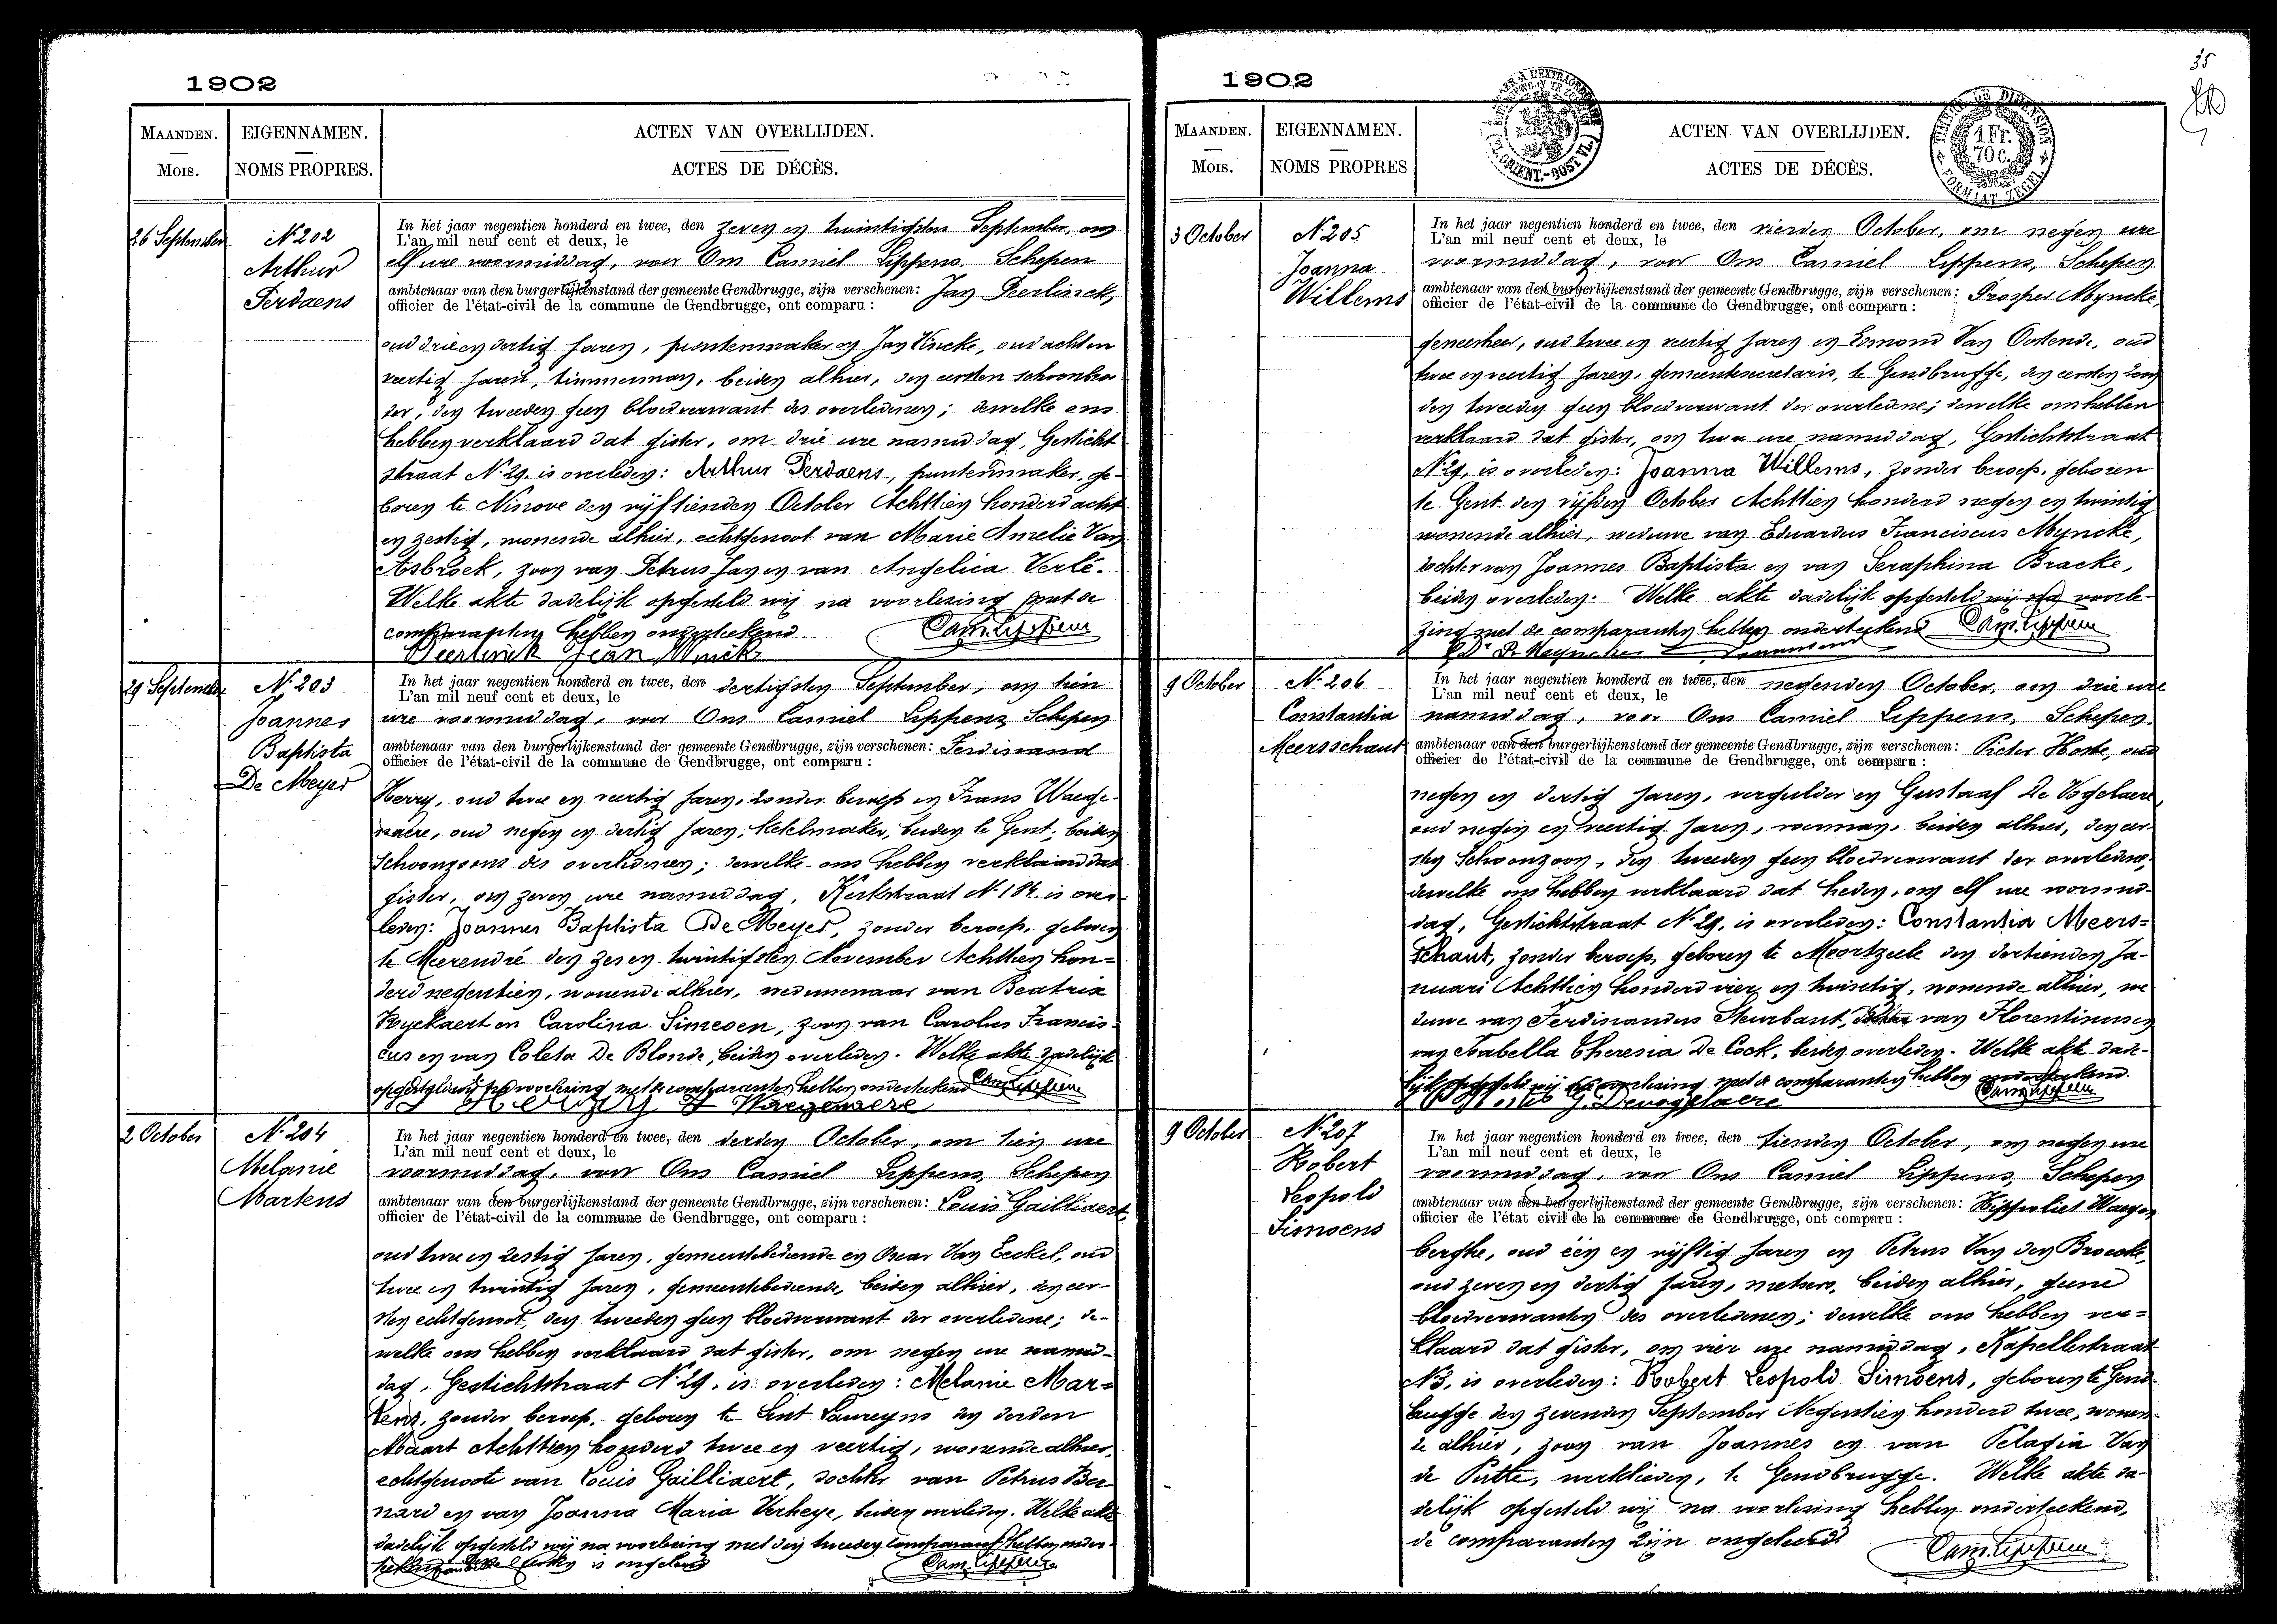 1902
MAANDEN.
Mois.
EIGENNAMEN.
NOMS PROPRES.
ACTEN VAN OVERLIJDEN.
ACTES DE DÉCÈS.
26 September
N° 202
Arthur
Perdaens
In het jaar negentien honderd en twee, den zeven en twintigsten September, om
L'an mil neuf cent et deux, le
elf ure voormiddag, voor Ons Camiel Lippens, Schepen
ambtenaar van den burgerlijkenstand der gemeente Gendbrugge, zijn verschenen: Jan Peerlinck,
officier de l'état-civil de la commune de Gendbrugge, ont comparu :
oud drie en dertig jaren, puntenmaker en Jan Vincke, oud acht en
veertig jaren, timmerman, beiden alhier, den eersten schoonbroe
der, den tweeden geen bloedverwant des overledenen; dewelke ons
hebben verklaard dat gister, om drie ure namiddag, Gesticht
straat N° 29, is overleden: Arthur Perdaens, puntenmaker, ge-
boren te Ninove den vijftienden October Achttien honderd acht
en zestig, wonende alhier, echtgenoot van Marie Amelie Van
Asbroek, zoon van Petrus Jan en van Angelica Verlé.
Welke akte dadelijk opgesteld wij na voorlezing met de
comparanten hebben onderteekend Cam. Lippens
Peerlinck Jean Vinck
29 September
N° 203
Joannes
Baptista
De Meyer
In het jaar negentien honderd en twee, den dertigsten September, om tien
L'an mil neuf cent et deux, le
ure voormiddag, voor Ons Camiel Lippens Schepen
ambtenaar van den burgerlijkenstand der gemeente Gendbrugge, zijn verschenen: Ferdinand
officier de l'état-civil de la commune de Gendbrugge, ont comparu :
Herry, oud twee en veertig jaren, zonder beroep en Frans Waege-
naere, oud negen en dertig jaren, stekelmaker, beiden te Gent, beiden
Schoonzoons des overledenen; dewelke ons hebben verklaard dat
gister, om zeven ure namiddag, Kerkstraat N° 184, is over-
leden: Joannes Baptista De Meyer, zonder beroep, geboren
te Meerendré den zes en twintigsten November Achttien hon-
derd negentien, wonende alhier, weduwenaar van Beatrix
Ryckaert en Carolina Simeoen, zoon van Carolus Francis-
cus en van Coleta De Blonde, beiden overleden. Welke akte dadelijk
opgesteld wij na voorlezing met de comparanten hebben onderteekend Cam Lippens
F Waegenaere
2 October
N° 204
Melanie
Martens
In het jaar negentien honderd en twee, den derden October, om tien ure
L'an mil neuf cent et deux, le
voormiddag, voor Ons Camiel Lippens, Schepen
ambtenaar van den burgerlijkenstand der gemeente Gendbrugge, zijn verschenen: Louis Gailliaert
officier de l'état-civil de la commune de Gendbrugge, ont comparu :
oud twee en zestig jaren, gemeentebediende en Oscar Van Eeckel, oud
twee en twintig jaren, gemeentebediende, beiden alhier, den eer-
sten echtgenoot, den tweeden geen bloedverwant der overledene; de-
welke ons hebben verklaard dat gister, om negen ure namid-
dag, Gestichtstraat N° 29, is overleden: Melanie Mar-
tens, zonder beroep, geboren te Sint Laureyns den derden
Maart Achttien honderd twee en veertig, wonende alhier,
echtgenoote van Louis Gailliaert, dochter van Petrus Ber-
nard en van Joanna Maria Verheye, beiden overleden. Welke akte
dadelijk opgesteld wij na voorlezing met den tweeden comparant hebben onder-
teekend eersten is ongeleerd Cam. Lippens
1902
35
MAANDEN.
Mois.
EIGENNAMEN.
NOMS PROPRES
ACTEN VAN OVERLIJDEN.
ACTES DE DÉCÈS.
TIMBRE DE DIMENSION
1 Fr.
70 c.
FORMAAT ZEGEL
3 October
N° 205
Joanna
Willems
In het jaar negentien honderd en twee, den vierden October, om negen ure
L'an mil neuf cent et deux, le
voormiddag, voor Ons Camiel Lippens, Schepen
ambtenaar van den burgerlijkenstand der gemeente Gendbrugge, zijn verschenen: Prosper Myncke,
officier de l'état-civil de la commune de Gendbrugge, ont comparu :
geneesheer, oud twee en veertig jaren en Edmond Van Oostende, oud
twee en veertig jaren, gemeentesecretaris, te Gendbrugge, den eersten zoon
den tweeden geen bloedverwant der overledene; dewelke ons hebben
verklaard dat gister, om twee ure namiddag, Gestichtstraat
N° 29, is overleden: Joanna Willems, zonder beroep, geboren
te Gent den vijfden October Achttien honderd negen en twintig
wonende alhier, weduwe van Eduardus Franciscus Myncke,
dochter van Joannes Baptista en van Seraphina Bracke,
beiden overleden. Welke akte dadelijk opgesteld wij na voorle-
zing met de comparanten hebben onderteekend Cam. Lippens
9 October
N° 206
Constantia
Meersschaut
In het jaar negentien honderd en twee, den negenden October, om drie ure
L'an mil neuf cent et deux, le
namiddag, voor Ons Camiel Lippens, Schepen
ambtenaar van den burgerlijkenstand der gemeente Gendbrugge, zijn verschenen: Pieter Hoste, oud
officier de l'état-civil de la commune de Gendbrugge, ont comparu :
negen en dertig jaren, vergulder en Gustaaf De Vogelaere,
oud negen en veertig jaren, voerman, beiden alhier, den eer-
sten Schoonzoon, den tweeden geen bloedverwant der overledene,
dewelke ons hebben verklaard dat heden, om elf ure voormid-
dag, Gestichtstraat N° 29, is overleden: Constantia Meers-
schaut, zonder beroep, geboren te Moortzeele den dertienden Ja-
nuari Achttien honderd vier en twintig, wonende alhier, we
duwe van Ferdinandus Steurbaut, dochter van Florentinus en
van Isabella Theresia De Cock, beiden overleden. Welke akte dade-
lijk opgesteld wij na voorlezing met de comparanten hebben onderteekend.
P Hoste G. Devogelaere Cam Lippens
9 October
N° 207
Robert
Leopold
Simoens
In het jaar negentien honderd en twee, den tienden October, om negen ure
L'an mil neuf cent et deux, le
voormiddag, voor Ons Camiel Lippens, Schepen
ambtenaar van den burgerlijkenstand der gemeente Gendbrugge, zijn verschenen: Hippoliet Waegen
officier de l'état civil de la commune de Gendbrugge, ont comparu :
berghe, oud één en vijftig jaren en Petrus Van den Broecke,
oud zeven en dertig jaren, metsers, beiden alhier, geene
bloedverwanten des overledenen; dewelke ons hebben ver-
klaard dat gister, om vier ure namiddag, Kapellestraat
N° 3, is overleden: Robert Leopold Simoens, geboren te Gend-
brugge den zevenden September Negentien honderd twee, wonen-
de alhier, zoon van Joannes en van Pelagia Van
de Putte, werklieden, te Gendbrugge. Welke akte da-
delijk opgesteld wij na voorlezing hebben onderteekend,
de comparanten zijn ongeleerd. Cam. Lippens